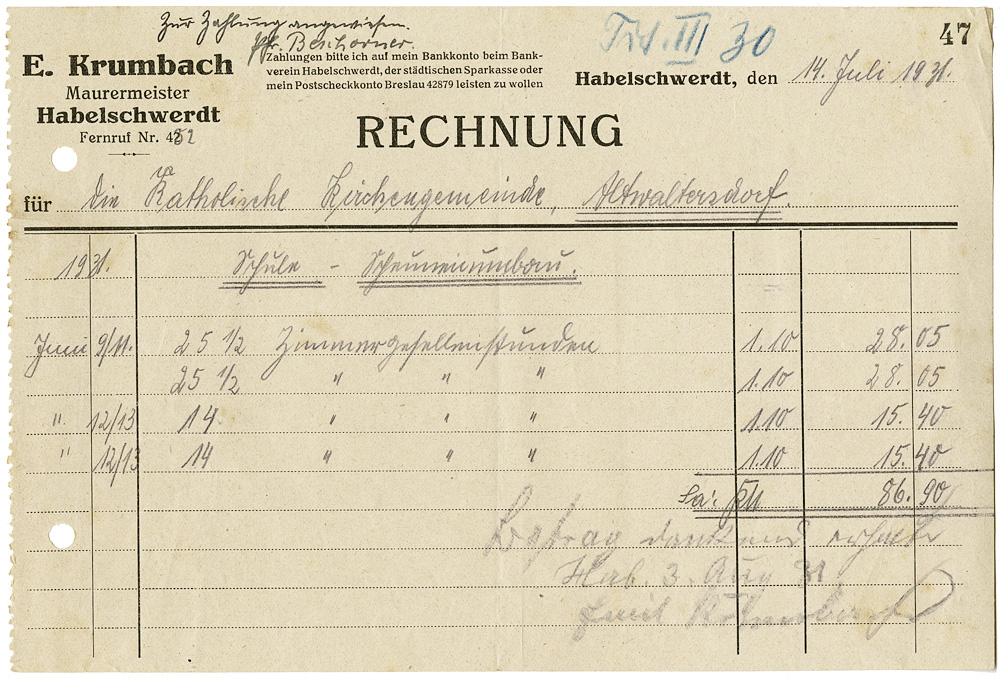 Zur Zahlung angewiesen.
Pfr. Beschorner.
Tit. III 30
47
E. Krumbach
Maurermeister
Habelschwerdt
Fernruf Nr. 452
Zahlungen bitte ich auf mein Bankkonto beim Bank-
verein Habelschwerdt, der städtischen Sparkasse oder
mein Postscheckkonto Breslau 42879 leisten zu wollen
Habelschwerdt, den 14. Juli 1931.
RECHNUNG
für die Katholische Kirchengemeinde, Altwaltersdorf.
1931. Schule - Scheunenumbau.
Juni 9/11. 25 1/2 Zimmergesellenstunden 1.10 28.05
25 1/2 " " " 1.10 28.05
" 12/13 14 " " " 1.10 15.40
" 12/13 14 " " " 1.10 15.40
Sa: RM 86.90
Betrag dankend erhalten
Hab. 3. Aug 31
Emil Krumbach